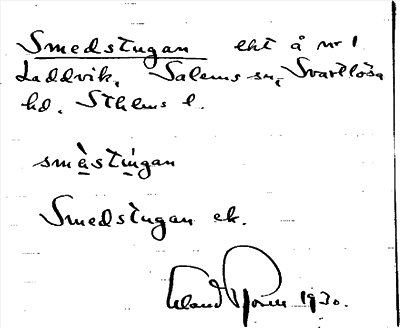 Smedstugan eht å nr 1
Laddvik, Salems sn, Svartlösa
hd. Sthlms l.
smèstúgan
Smedstugan ek.
Erland 1930.